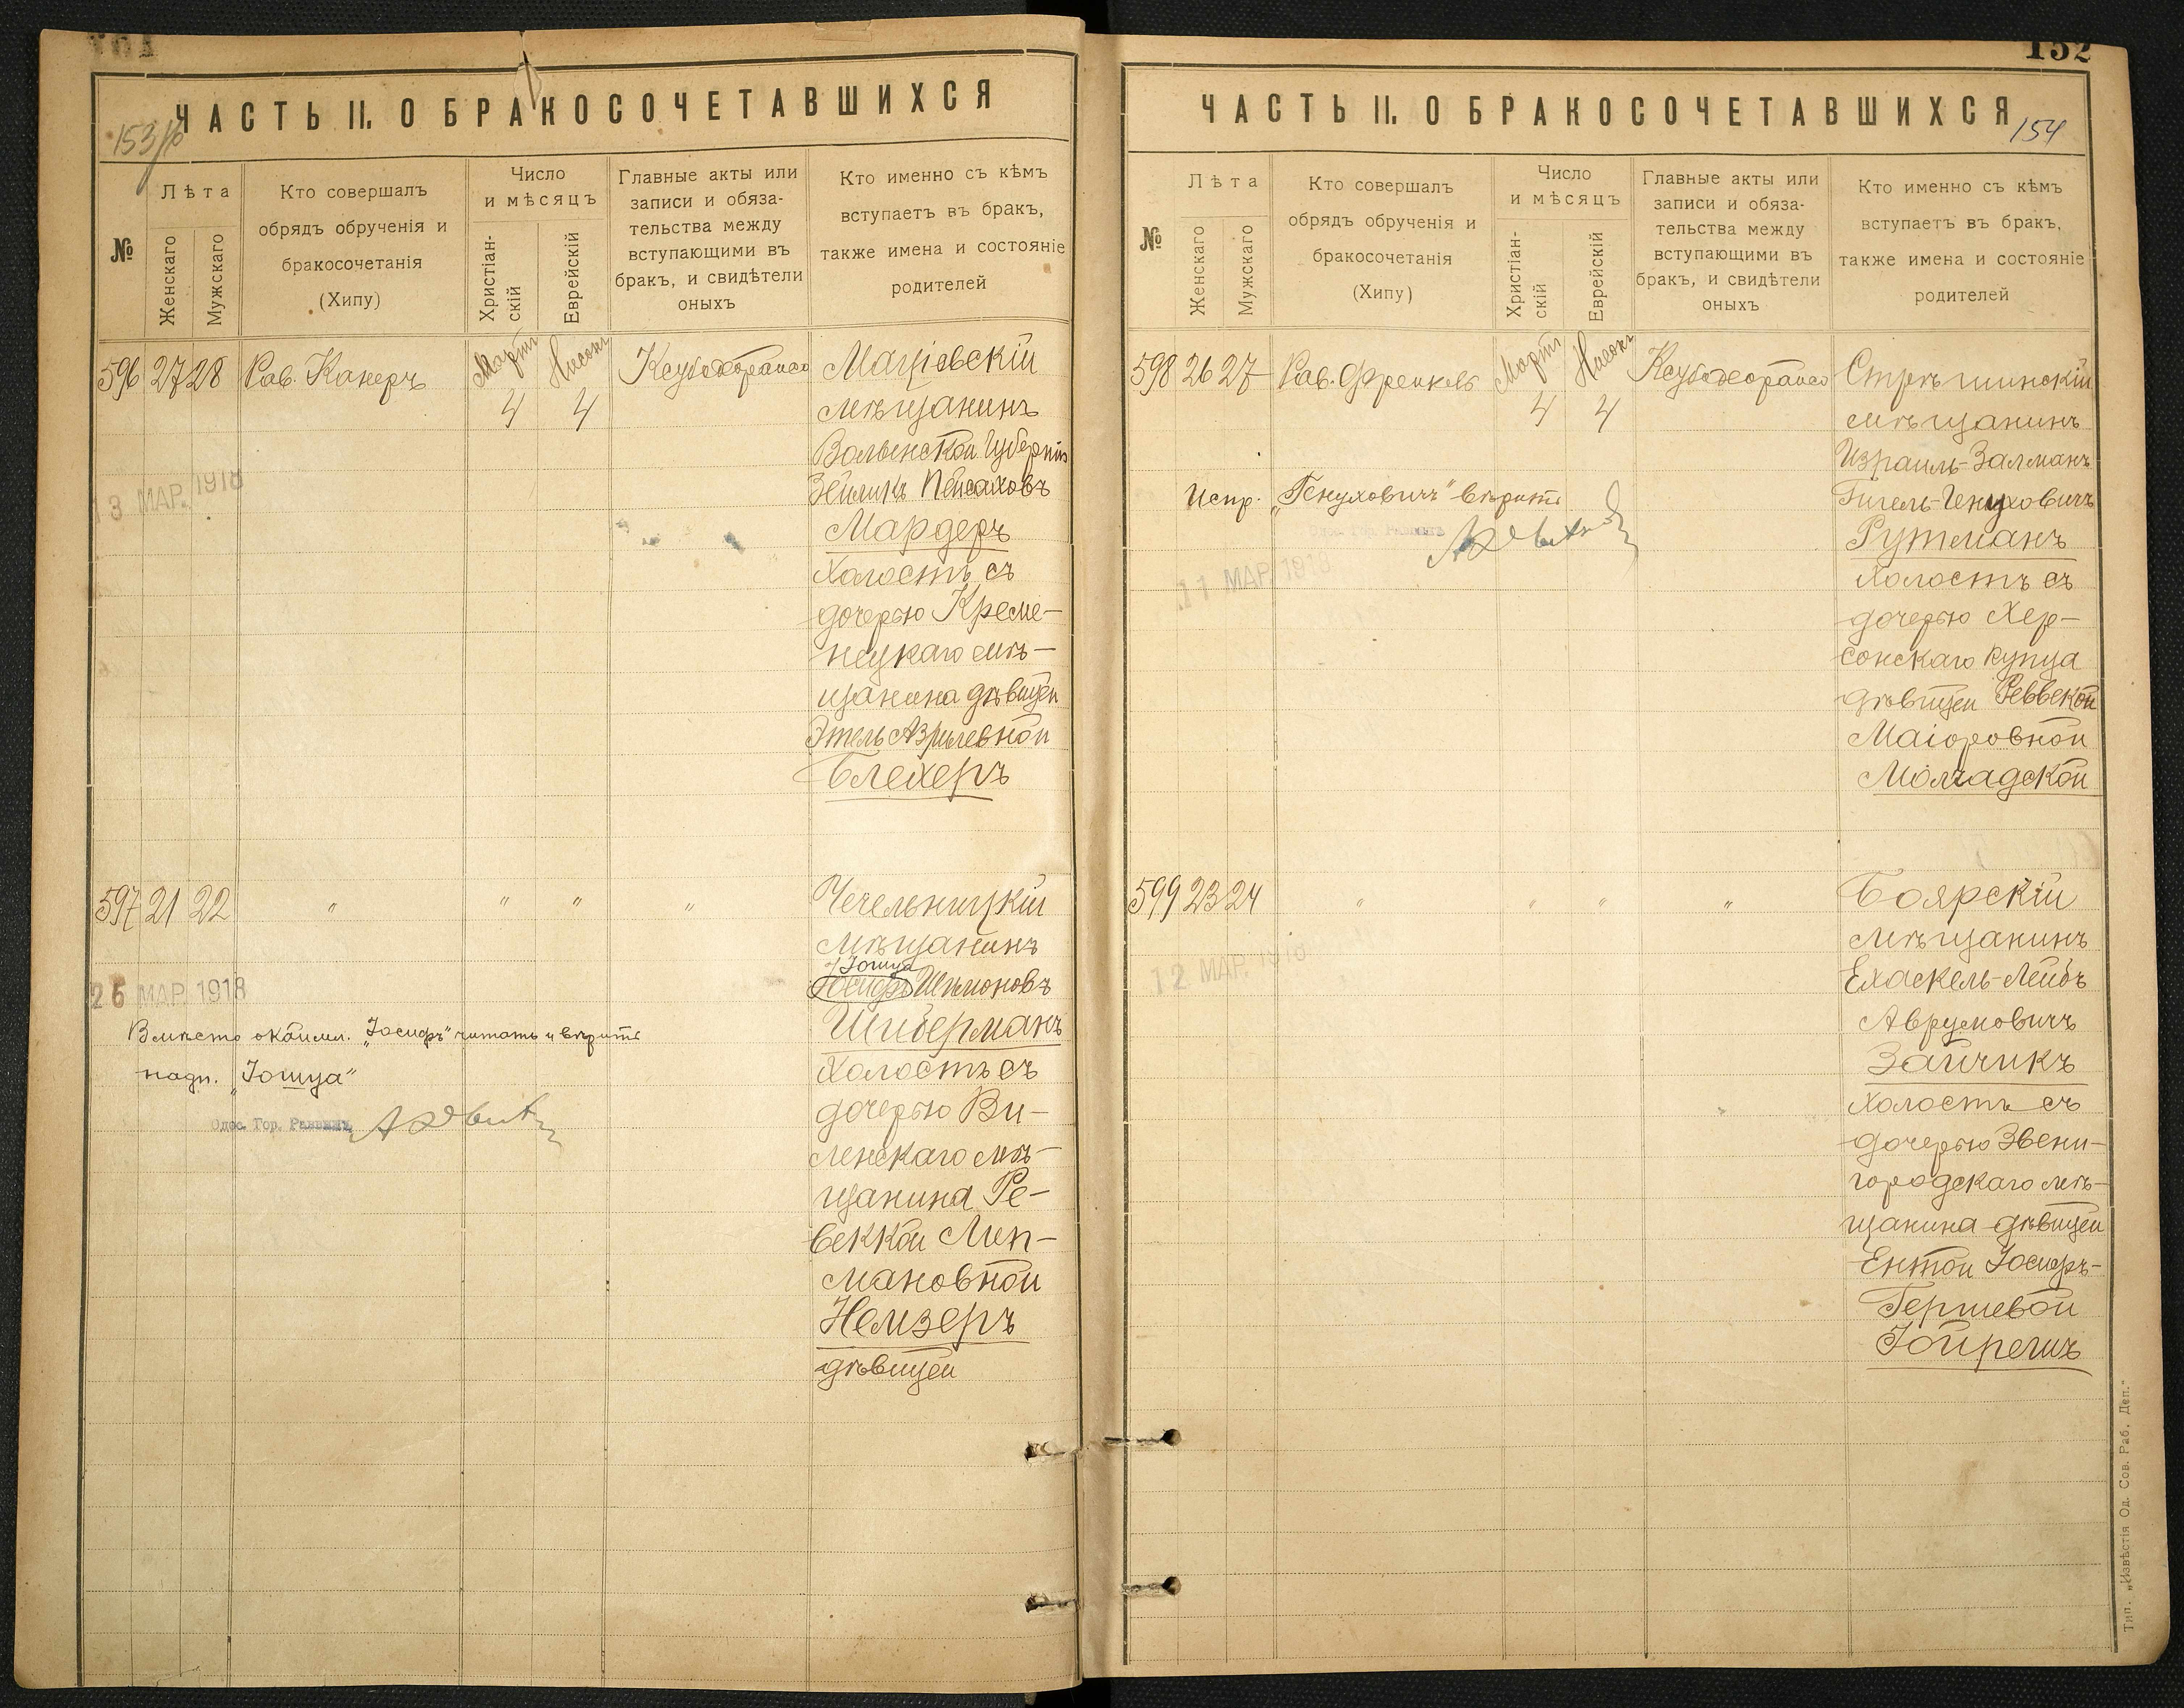 ЧАСТЬ II. О БРАКОСОЧЕТАВШИХСЯ
153
№
Лѣта
Женскаго
Мужскаго
Кто совершалъ
обрядъ обрученія и
бракосочетанія
(Хипу)
Число
и мѣсяцъ
Христіан-
скій
Еврейскій
Главные акты или
записи и обяза-
тельства между
вступающими въ
бракъ, и свидѣтели
оныхъ
Кто именно съ кѣмъ
вступаетъ въ бракъ,
также имена и состояніе
родителей
596 27 28 Рав. Канеръ Мартъ 4 Нисонъ 4
Маціовскій
мѣщанинъ
Волынской Губерніи
Зейликъ Пейсаховъ
Мардеръ
холостъ съ
дочерью Креме-
нецкаго мѣ-
щанина дѣвицей
Этель Азрилевной
Блехеръ
13 МАР. 1918
597 21 22 " " " "
Чечельницкій
мѣщанинъ
Іошуа
Іосифъ Шлионовъ
Шиберманъ
холостъ съ
дочерью Ви-
ленскаго мѣ-
щанина Ре-
веккой Лип-
мановной
Немзеръ
дѣвицей
26 МАР. 1918
Вмѣсто окаймл. „Іосифъ" читать и вѣрить
надп. „Іошуа"
Одес. Гор. Раввинъ
152
ЧАСТЬ II. О БРАКОСОЧЕТАВШИХСЯ
154
№
Лѣта
Женскаго
Мужскаго
Кто совершалъ
обрядъ обрученія и
бракосочетанія
(Хипу)
Число
и мѣсяцъ
Христіан-
скій
Еврейскій
Главные акты или
записи и обяза-
тельства между
вступающими въ
бракъ, и свидѣтели
оныхъ
Кто именно съ кѣмъ
вступаетъ въ бракъ,
также имена и состояніе
родителей
598 26 27 Рав. Френкель Мартъ 4 Нисонъ 4
Стрѣшинскій
мѣщанинъ
Израиль-Залманъ
Гигель-Генуховичъ
Рутманъ
холостъ съ
дочерью Хер-
сонскаго купца
дѣвицей Реввекой
Маіоровной
Молчадской
Испр. „Генуховичъ" вѣрить
11 МАР. 1918
599 23 24 " " " "
Боярскій
мѣщанинъ
Ехаскель-Лейбъ
Аврумовичъ
Зайчикъ
холостъ съ
дочерью Звени-
городскаго мѣ-
щанина дѣвицей
Ентой Іосифъ-
Гершевой
Іойречъ
12 МАР. 1918
Тип. „Извѣстія Од. Сов. Раб. Деп."